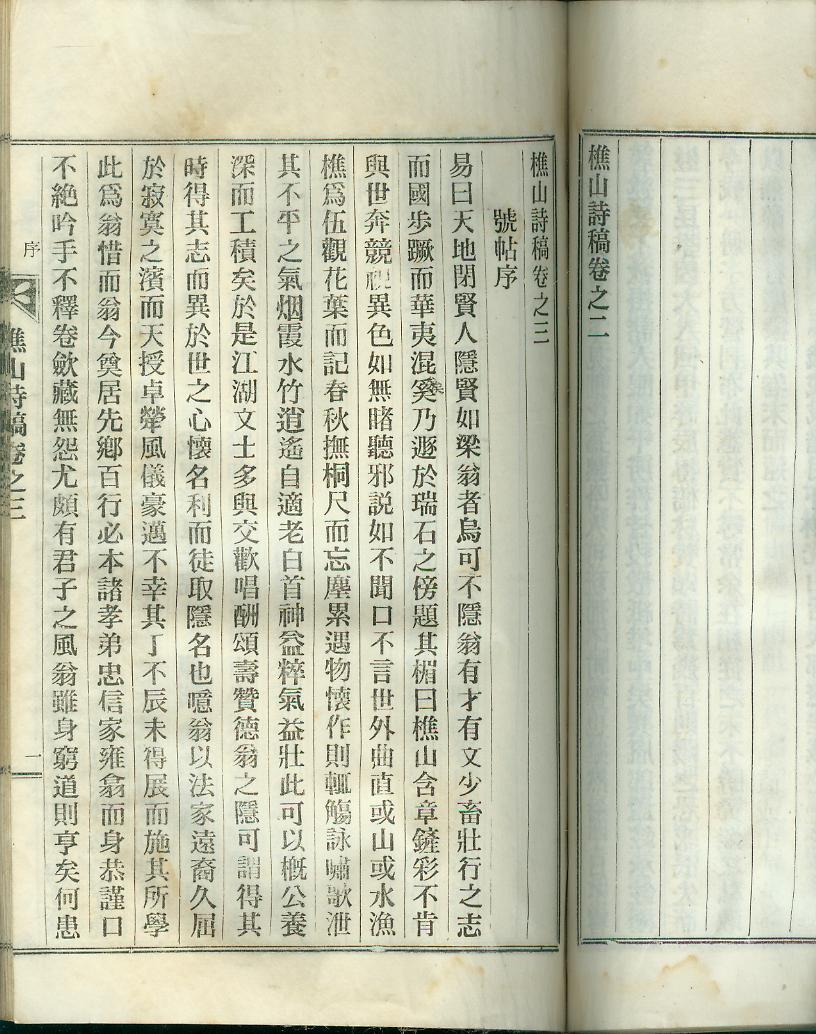 樵山詩稿卷之二
樵山詩稿卷之三
號帖序
易曰天地閉賢人隱賢如梁翁者烏可不隱翁有才有文少畜壯行之志
而國步蹶而華夷混奚乃遯於瑞石之傍題其楣曰樵山含章鏟彩不肯
與世奔競視異色如無睹聽邪説如不聞口不言世外曲直或山或水漁
樵爲伍觀花葉而記春秋撫桐尺而忘塵累遇物懷作則輒觴詠嘯歌泄
其不平之氣烟霞水竹逍遙自適老白首神益粹氣益壯此可以槪公養
深而工積矣於是江湖文士多與交歡唱酬頌壽贊德翁之隱可謂得其
時得其志而異於世之心懷名利而徒取隱名也噫翁以法家遠裔久屈
於寂寞之濱而天授卓犖風儀豪邁不幸其丁不辰未得展而施其所學
此爲翁惜而翁今奠居先鄕百行必本諸孝弟忠信家雍翕而身恭謹口
不絶吟手不釋卷歛藏無怨尤頗有君子之風翁雖身窮道則亨矣何患
序
樵山詩稿卷之三
一